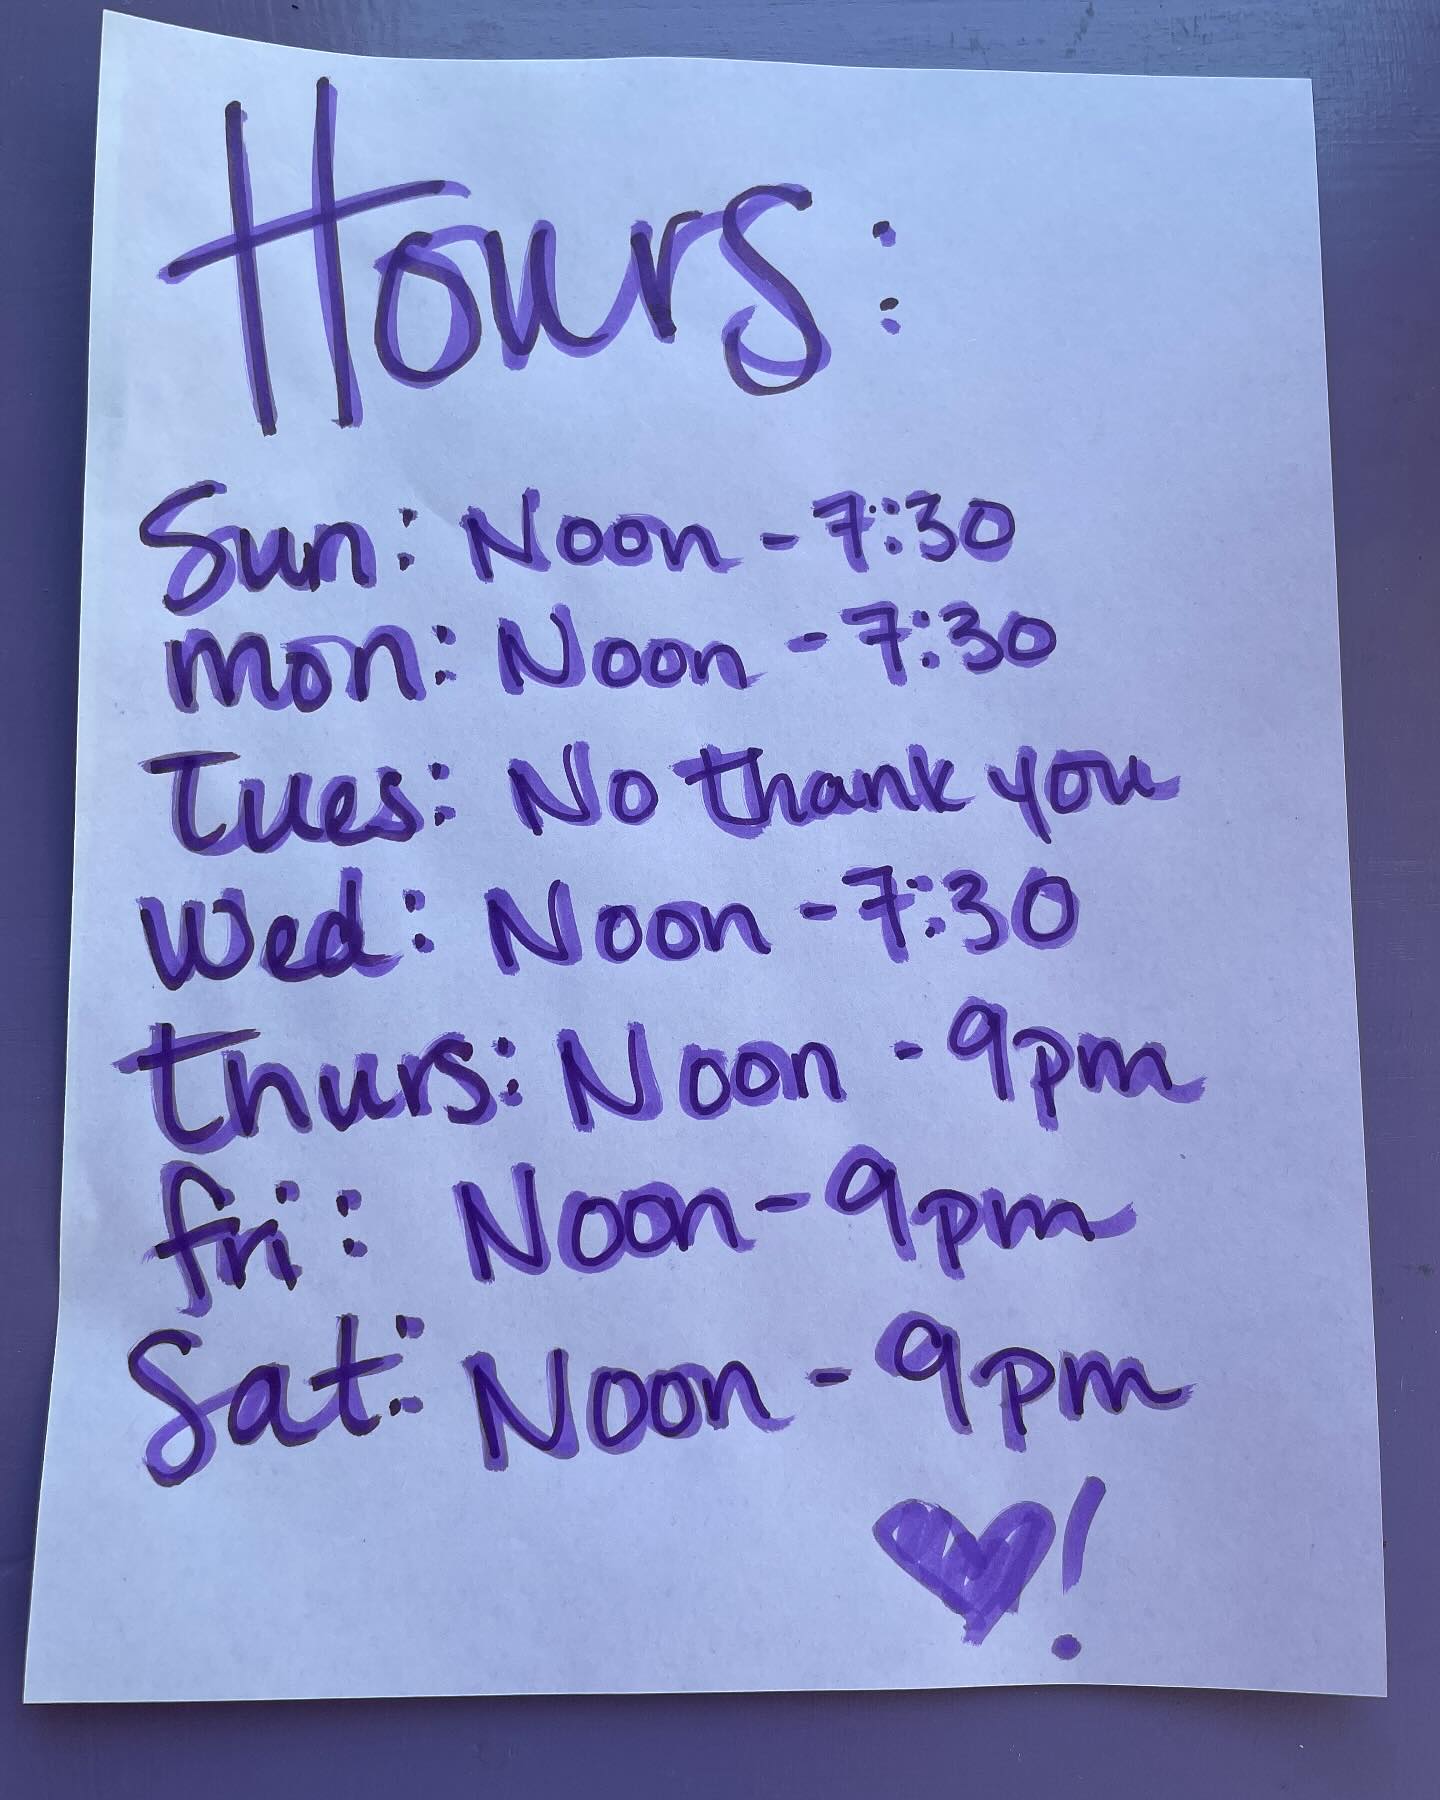 Hours:
Sun: Noon - 7:30
mon: Noon - 7:30
Tues: No thank you
Wed: Noon - 7:30
thurs: Noon - 9pm
fri: Noon - 9pm
Sat: Noon - 9pm
♥!